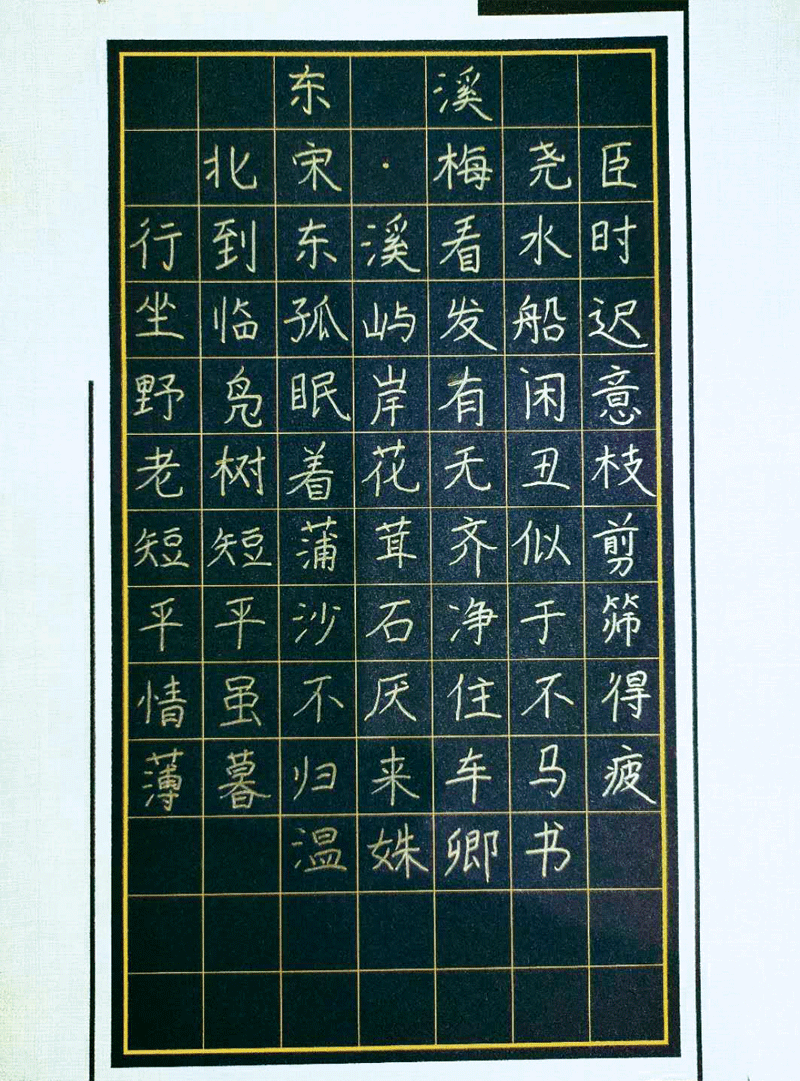 东溪
北宋·梅尧臣
行到东溪看水时
坐临孤屿发船迟
野凫眠岸有闲意
老树着花无丑枝
短短蒲茸齐似剪
平平沙石净于筛
情虽不厌住不得
薄暮归来车马疲
温姝卿书